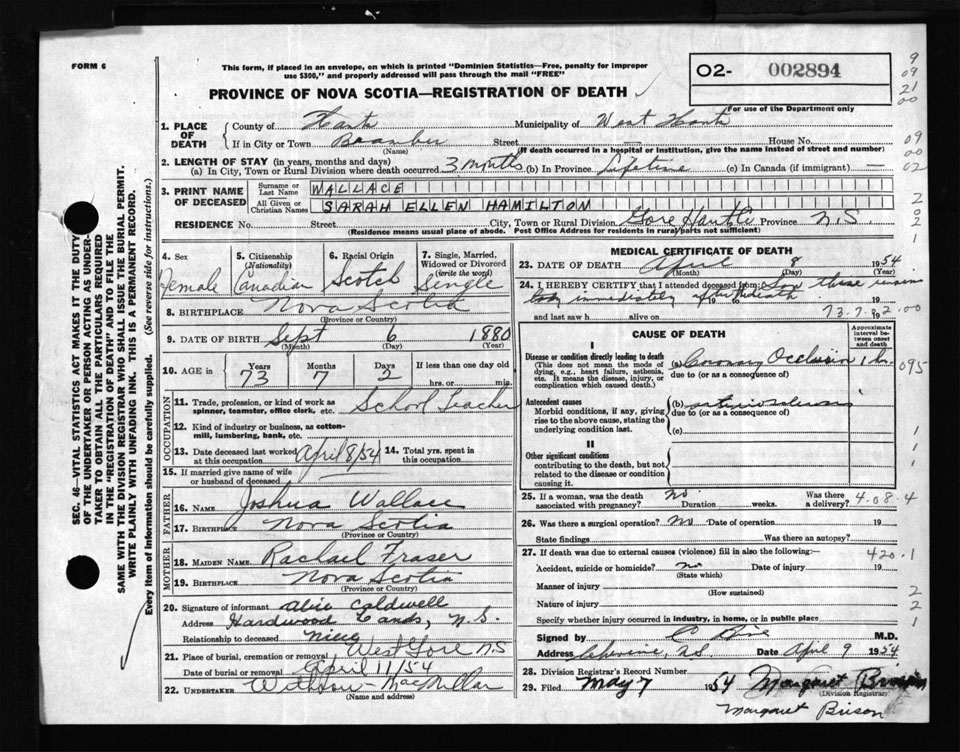 FORM 6
This form, if placed in an envelope, on which is printed "Dominion Statistics—Free, penalty for improper
use $300," and properly addressed will pass through the mail "FREE"
PROVINCE OF NOVA SCOTIA—REGISTRATION OF DEATH
02- 002894
For use of the Department only
9
09
21
00
09
00
02
2
02
1
1. PLACE OF DEATH
County of Hants Municipality of West Hants
If in City or Town Street — House No.
(Name) (If death occurred in a hospital or institution, give the name instead of street and number)
2. LENGTH OF STAY (in years, months and days)
(a) In City, Town or Rural Division where death occurred 3 months (b) In Province Lifetime (c) In Canada (if immigrant) —
3. PRINT NAME OF DECEASED
Surname or Last Name WALLACE
All Given or Christian Names SARAH ELLEN HAMILTON
RESIDENCE No. Street City, Town or Rural Division Gore Hants Co Province N.S.
(Residence means usual place of abode. Post Office Address for residents in rural parts not sufficient)
4. Sex Female
5. Citizenship (Nationality) Canadian
6. Racial Origin Scotch
7. Single, Married, Widowed or Divorced (write the word) Single
8. BIRTHPLACE Nova Scotia
(Province or Country)
9. DATE OF BIRTH Sept 6 1880
(Month) (Day) (Year)
10. AGE in Years 73 Months 7 Days 2 If less than one day old
hrs. or min.
OCCUPATION
11. Trade, profession, or kind of work as spinner, teamster, office clerk, etc. School Teacher
12. Kind of industry or business, as cotton-mill, lumbering, bank, etc.
13. Date deceased last worked at this occupation April 8/54
14. Total yrs. spent in this occupation
15. If married give name of wife or husband of deceased
FATHER
16. NAME Joshua Wallace
17. BIRTHPLACE Nova Scotia
(Province or Country)
MOTHER
18. MAIDEN NAME Rachael Fraser
19. BIRTHPLACE Nova Scotia
(Province or Country)
20. Signature of informant Alice Caldwell
Address Hardwood Lands, N.S.
Relationship to deceased niece
21. Place of burial, cremation or removal West Gore N.S
Date of burial or removal April 11/54
22. UNDERTAKER MacMillan
(Name and address)
MEDICAL CERTIFICATE OF DEATH
23. DATE OF DEATH April 8 1954
(Month) (Day) (Year)
24. I HEREBY CERTIFY that I attended deceased from
body immediately after death 19
and last saw h alive on 19
73.7.2.00
CAUSE OF DEATH
Approximate interval between onset and death
I
Disease or condition directly leading to death
(This does not mean the mode of dying, e.g., heart failure, asthenia, etc. It means the disease, injury, or complication which caused death.)
(a) Coronary Occlusion 1 hr.
due to (or as a consequence of)
095
Antecedent causes
Morbid conditions, if any, giving rise to the above cause, stating the underlying condition last.
(b) arteriosclerosis
due to (or as a consequence of)
(c)
II
Other significant conditions
contributing to the death, but not related to the disease or condition causing it.
1
1
1
25. If a woman, was the death associated with pregnancy? no Duration weeks. Was there a delivery?
4-08-4
26. Was there a surgical operation? no Date of operation 19
State findings Was there an autopsy?
27. If death was due to external causes (violence) fill in also the following:—
420.1
Accident, suicide or homicide? no Date of injury 19
(State which)
Manner of injury
(How sustained)
Nature of injury
Specify whether injury occurred in industry, in home, or in public place
2
2
1
Signed by M.D.
Address N.S. Date April 9 1954
28. Division Registrar's Record Number
29. Filed May 7 1954 Margaret Brison
(Division Registrar)
Margaret Brison
SEC. 46—VITAL STATISTICS ACT MAKES IT THE DUTY
OF THE UNDERTAKER OR PERSON ACTING AS UNDER-
TAKER TO OBTAIN ALL THE PARTICULARS REQUIRED
IN THE "REGISTRATION OF DEATH" AND TO FILE THE
SAME WITH THE DIVISION REGISTRAR WHO SHALL ISSUE THE BURIAL PERMIT.
WRITE PLAINLY WITH UNFADING INK. THIS IS A PERMANENT RECORD.
Every item of information should be carefully supplied. (See reverse side for instructions.)